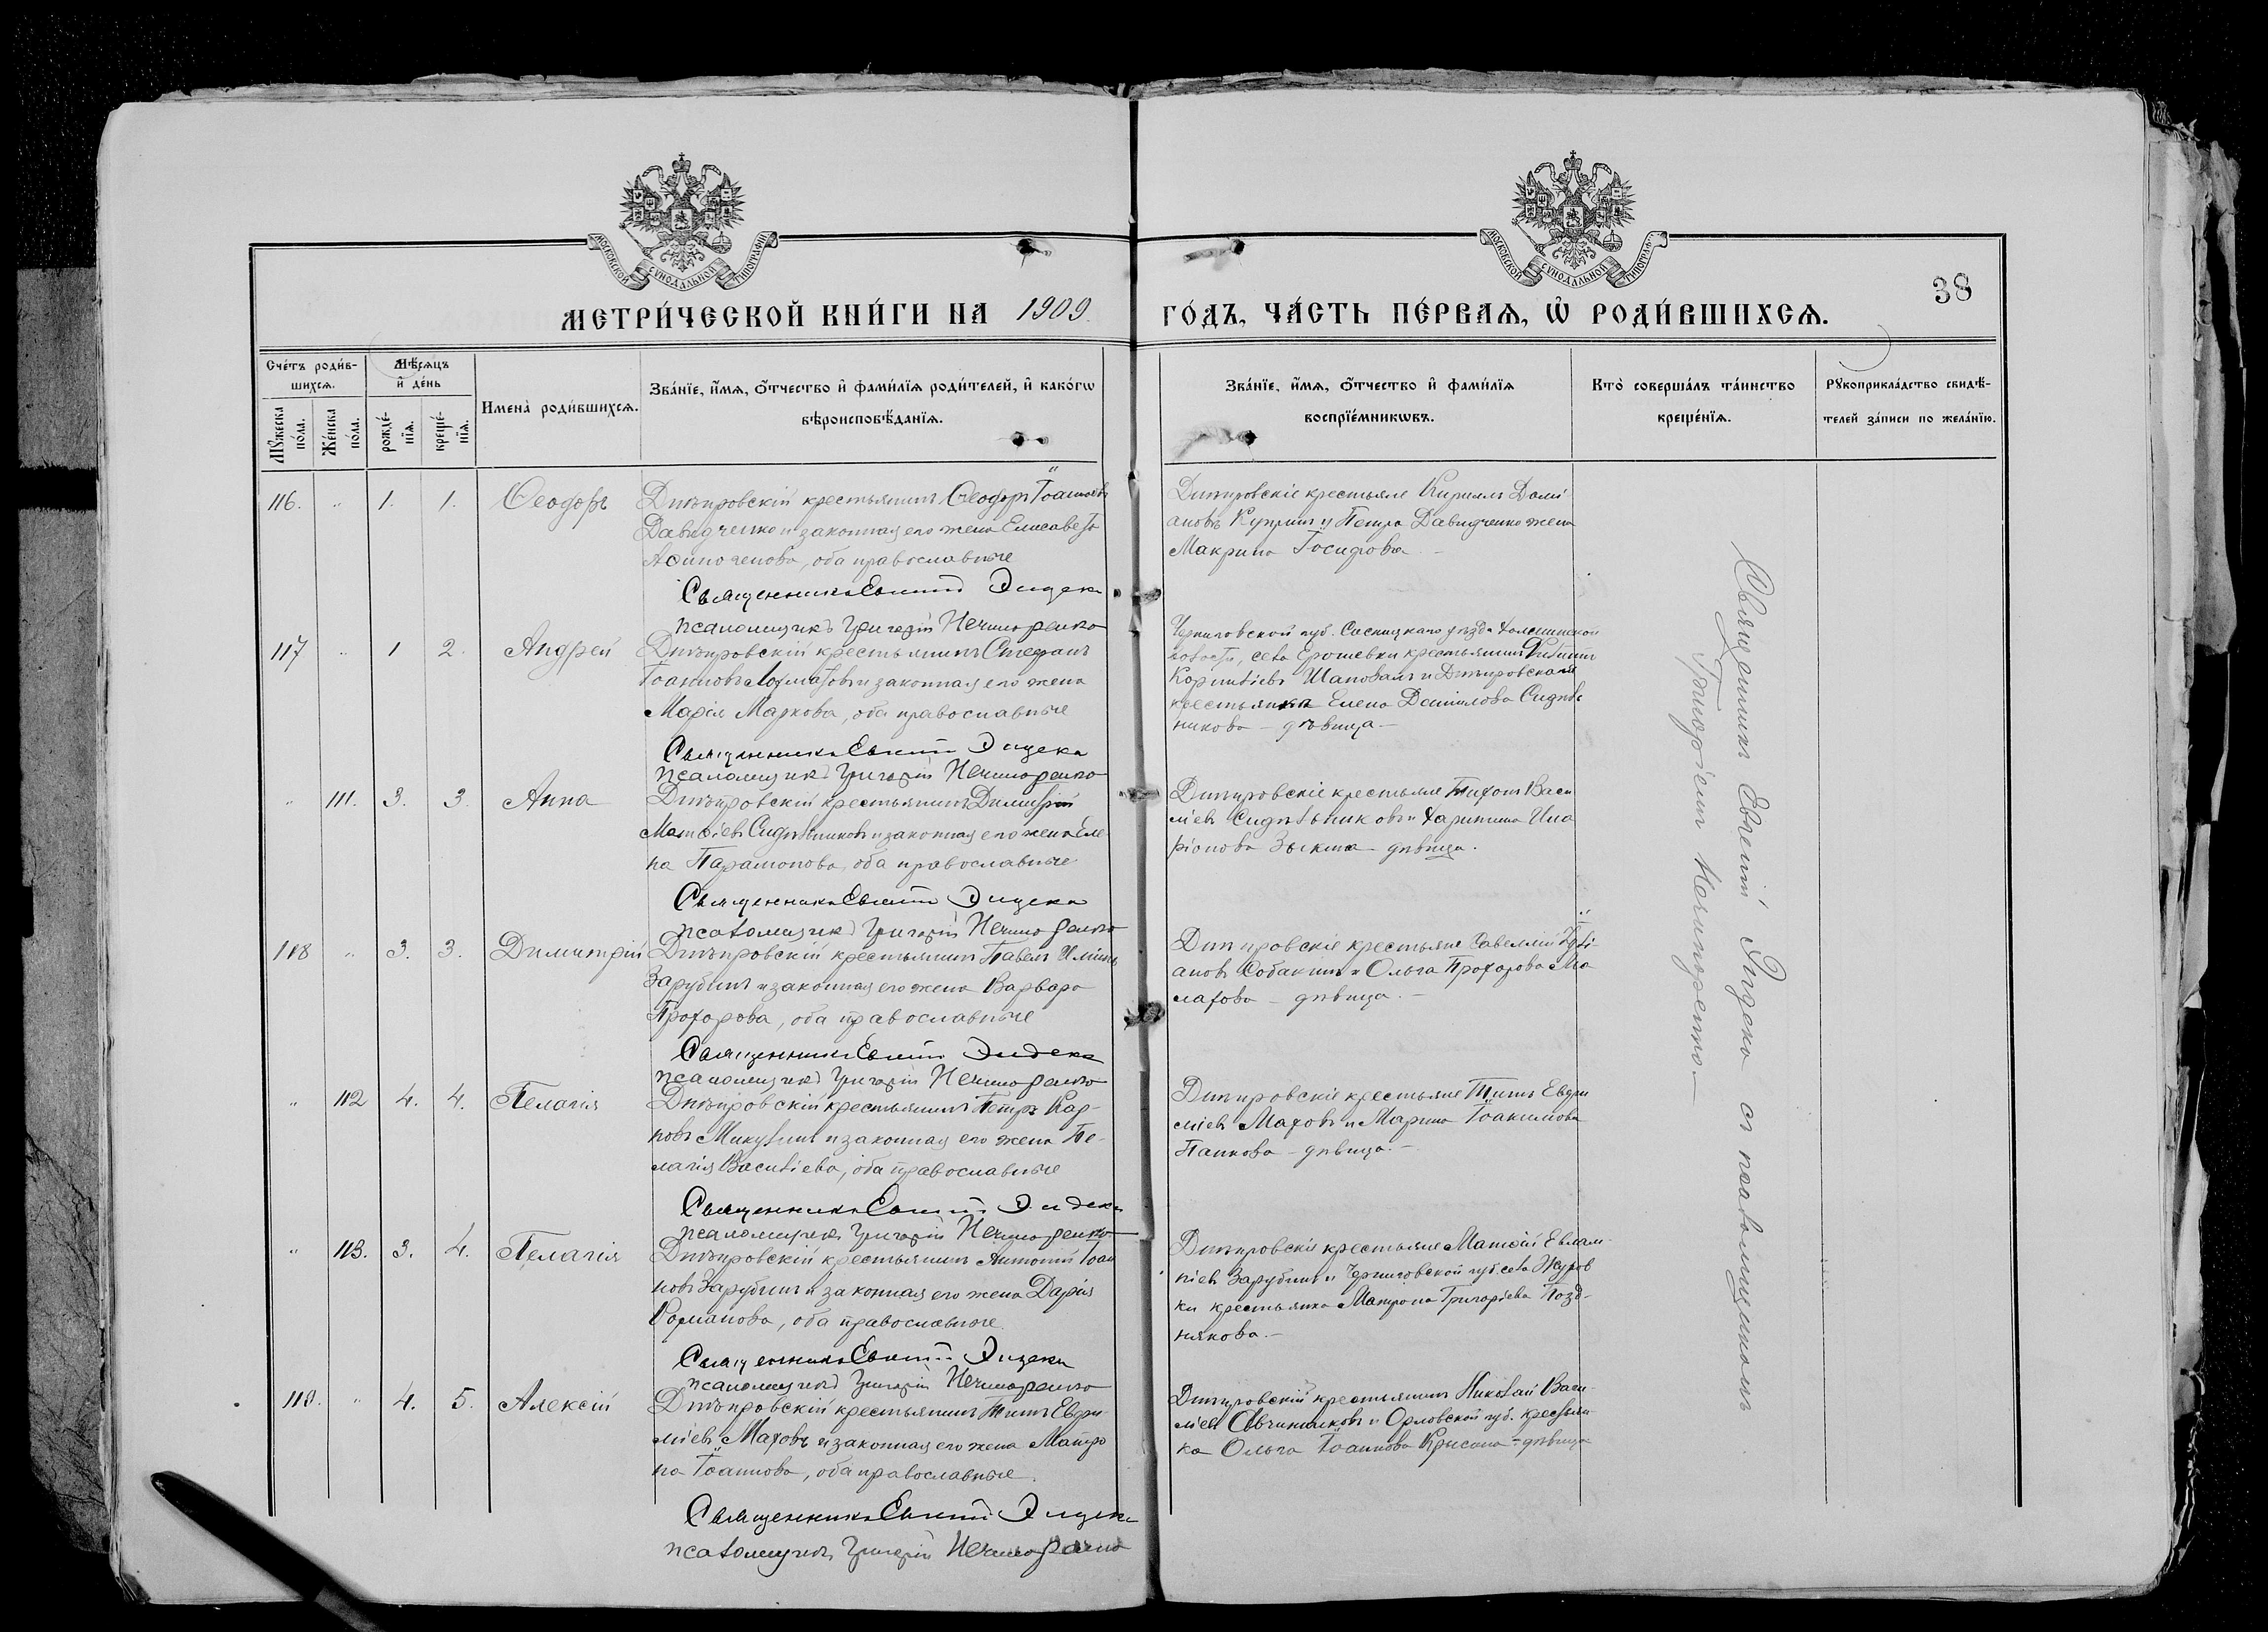 МОСКОВСКОЙ СѴНОДАЛЬНОЙ ТИПОГРАФІИ
МОСКОВСКОЙ СѴНОДАЛЬНОЙ ТИПОГРАФІИ
38
МЕТРИ́ЧЕСКОЙ КНИ́ГИ НА 1909 ГО́ДЪ, ЧА́СТЬ ПЕ́РВАЯ, Ѡ҆ РОДИ́ВШИХСЯ.
Сче́тъ роди́в-
шихся.
Мꙋ́жеска по́ла.
Же́нска по́ла.
Мѣ́сяцъ
и҆ де́нь
рожде́-
нїя.
креще́-
нїя.
И҆мена̀ роди́вшихся.
Зва́нїе, и҆́мя, ѻ҆́тчество и҆ фами́лїя роди́телей, и҆ како́гѡ
вѣроисповѣ́данїя.
Зва́нїе, и҆́мя, ѻ҆́тчество и҆ фами́лїя
воспрїе́мникѡвъ.
Кто̀ соверша́лъ та́инство
креще́нїя.
Рꙋкоприкла́дство свидѣ́-
телей за́писи по жела́нїю.
116. " 1. 1. Ѳеодоръ
Днѣпровскій крестьянинъ Ѳеодоръ Іоанновъ
Давидченко и законная его жена Елисавета
Аѳиногенова, оба православные
Священникъ Евгеній Эндека
псаломщикъ Григорій Нечипоренко
Днѣпровскіе крестьяне Кириллъ Доми-
ановъ Купринъ и Петра Давидченко жена
Макрина Іосифова
117 " 1 2. Андрей
Днѣпровскій крестьянинъ Стефанъ
Іоанновъ и законная его жена
Марія Маркова, оба православные
Священникъ Евгеній Эндека
псаломщикъ Григорій Нечипоренко
Черниговской губ. Сосницкаго уѣзда
волости, села Ерошевки крестьянинъ Филиппъ
Корниліевъ Шаповалъ и Днѣпровская
крестьянка Елена Даніилова Сидѣль
никова – дѣвица –
" 111. 3. 3. Анна
Днѣпровскій крестьянинъ Димитрій
Матѳіевъ Сидѣльниковъ и законная его жена Еле-
на Парамонова, оба православные
Священникъ Евгеній Эндека
псаломщикъ Григорій Нечипоренко
Днѣпровскіе крестьяне Тихонъ Васи
ліевъ Сидѣльниковъ и Харитина Ила
ріонова Зыкина – дѣвица.
118 " 3. 3. Димитрій
Днѣпровскій крестьянинъ Павелъ Иліинъ
Зарубинъ и законная его жена Варвара
Прохорова, оба православные
Священникъ Евгеній Эндека
псаломщикъ Григорій Нечипоренко
Днѣпровскіе крестьяне Савеллій Іулі-
ановъ Собакинъ и Ольга Прохорова Ма
лахова – дѣвица. –
" 112 4. 4. Пелагія
Днѣпровскій крестьянинъ Петръ Кар-
повъ Микулинъ и законная его жена Пе-
лагія Василіева, оба православные
Священникъ Евгеній Эндека
псаломщикъ Григорій Нечипоренко
Днѣпровскіе крестьяне Титъ Евфи
міевъ Маховъ и Марина Іоакимова
Панкова – дѣвица. –
" 113. 3. 4. Пелагія
Днѣпровскій крестьянинъ Антоній Іоан
новъ Зарубинъ и законная его жена Дарія
Романова, оба православные.
Священникъ Евгеній Эндека
псаломщикъ Григорій Нечипоренко
Днѣпровскіе крестьяне Матѳій Евлам-
піевъ Зарубинъ и Черниговской губ. села Журов
ки крестьянка Матрона Григоріева Позд-
някова. –
119. " 4. 5. Алексій
Днѣпровскій крестьянинъ Титъ Евфи-
міевъ Маховъ и законная его жена Матро
на Іоаннова, оба православные.
Священникъ Евгеній Эндека
псаломщикъ Григорій Нечипоренко
Днѣпровскій крестьянинъ Николай Васи-
ліевъ Овчинниковъ и Орловской губ. крестьян-
ка Ольга Іоаннова – дѣвица
Священникъ Евгеній Эндека съ псаломщикомъ
Григоріемъ Нечипоренко –